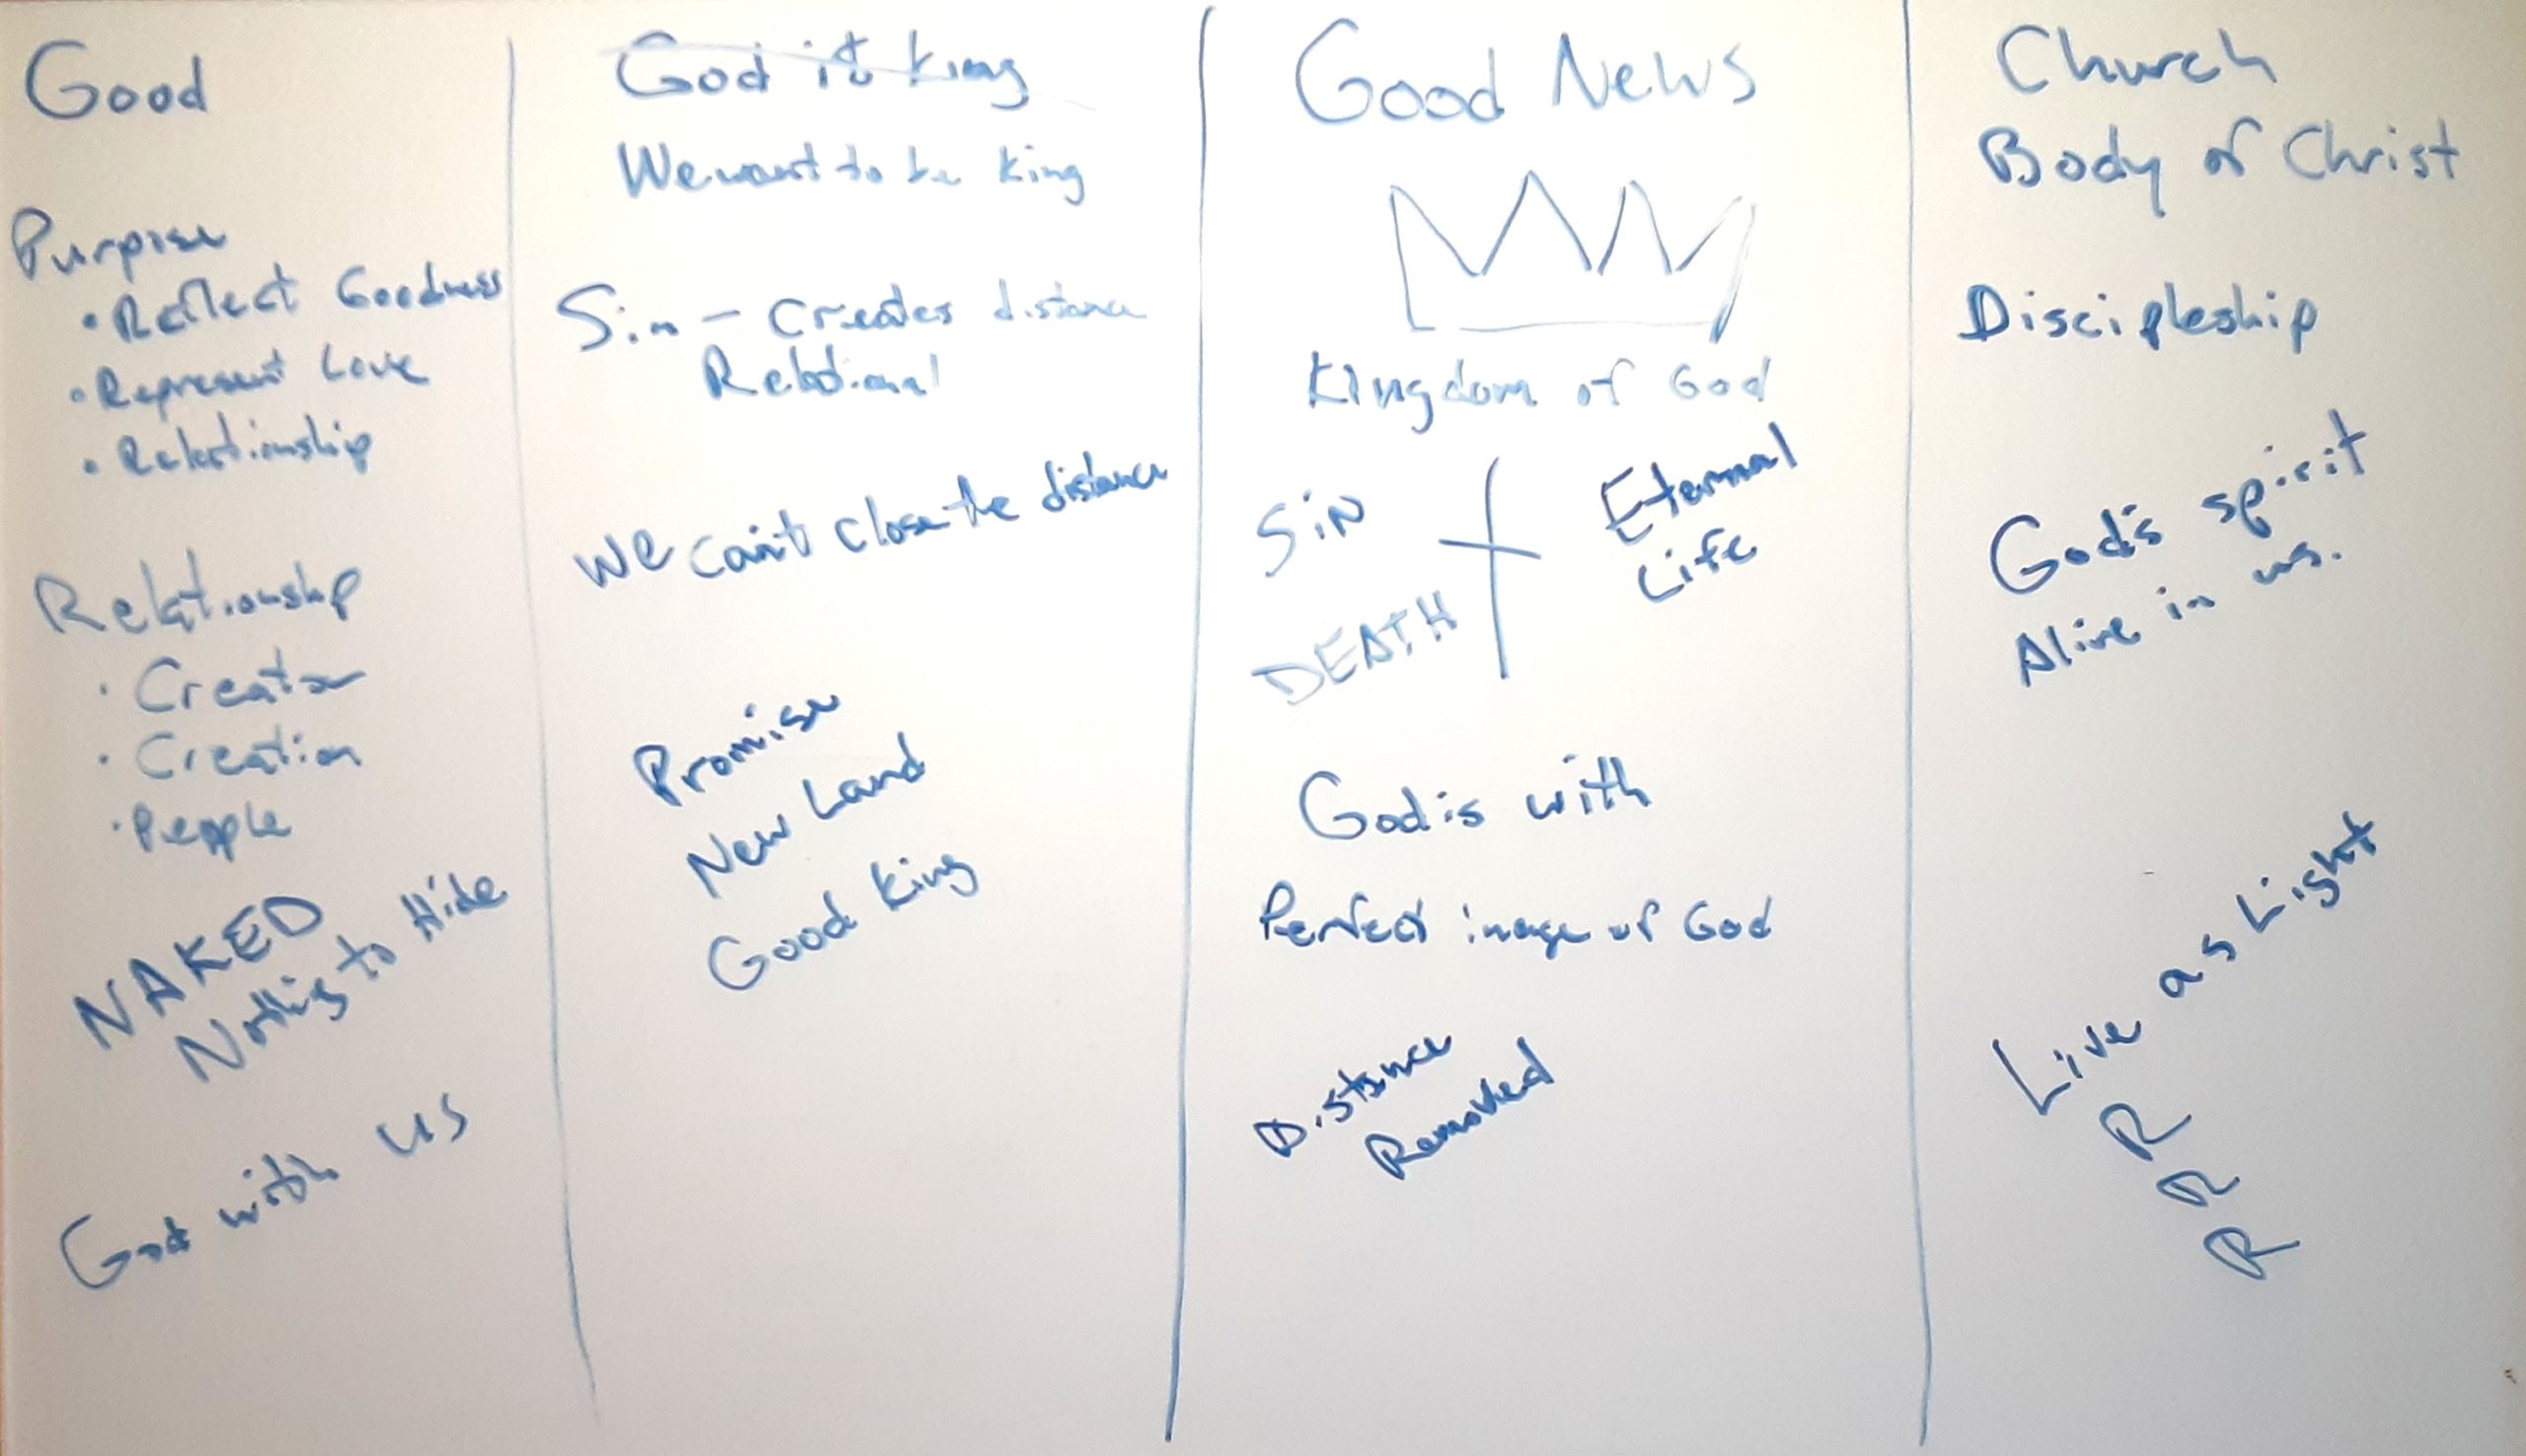 Good
Purpose
• Reflect Goodness
• Represent Love
• Relationship
Relationship
• Creator
• Creation
• People
NAKED
Nothing to Hide
God with us
God is king
We want to be king
Sin - Creates distance
Relational
We can't close the distance
Promise
New Land
Good king
Good News
Kingdom of God
Sin
DEATH
Eternal
Life
God is with
Perfect image of God
Distance
Removed
Church
Body of Christ
Discipleship
God's spirit
Alive in us.
Live as Light
R
R
R